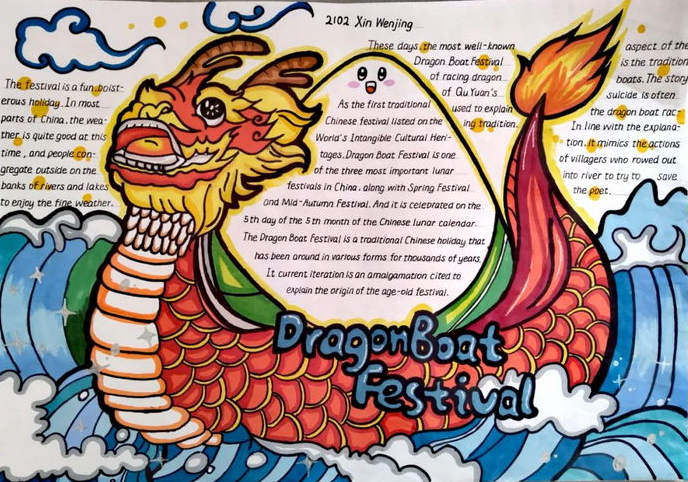 2102 Xin Wenjing
The festival is a fun, boist-
erous holiday. In most
parts of China, the wea-
ther is quite good at this
time, and people con-
gregate outside on the
banks of rivers and lakes
to enjoy the fine weather.
As the first traditional
Chinese festival listed on the
World's Intangible Cultural Heri-
tages, Dragon Boat Festival is one
of the three most important lunar
festivals in China, along with Spring Festival
and Mid-Autumn Festival. And it is celebrated on the
5th day of the 5th month of the Chinese lunar calendar.
The Dragon Boat Festival is a traditional Chinese holiday that
has been around in various forms for thousands of years.
It current iteration is an amalgamation cited to
explain the origin of the age-old festival.
These days, the most well-known aspect of the
Dragon Boat Festival is the tradition
of racing dragon boats. The story
of Qu Yuan's suicide is often
used to explain the dragon boat rac-
ing tradition. In line with the explana-
tion, it mimics the actions
of villagers who rowed out
into river to try to save
the poet.
Dragon Boat
Festival